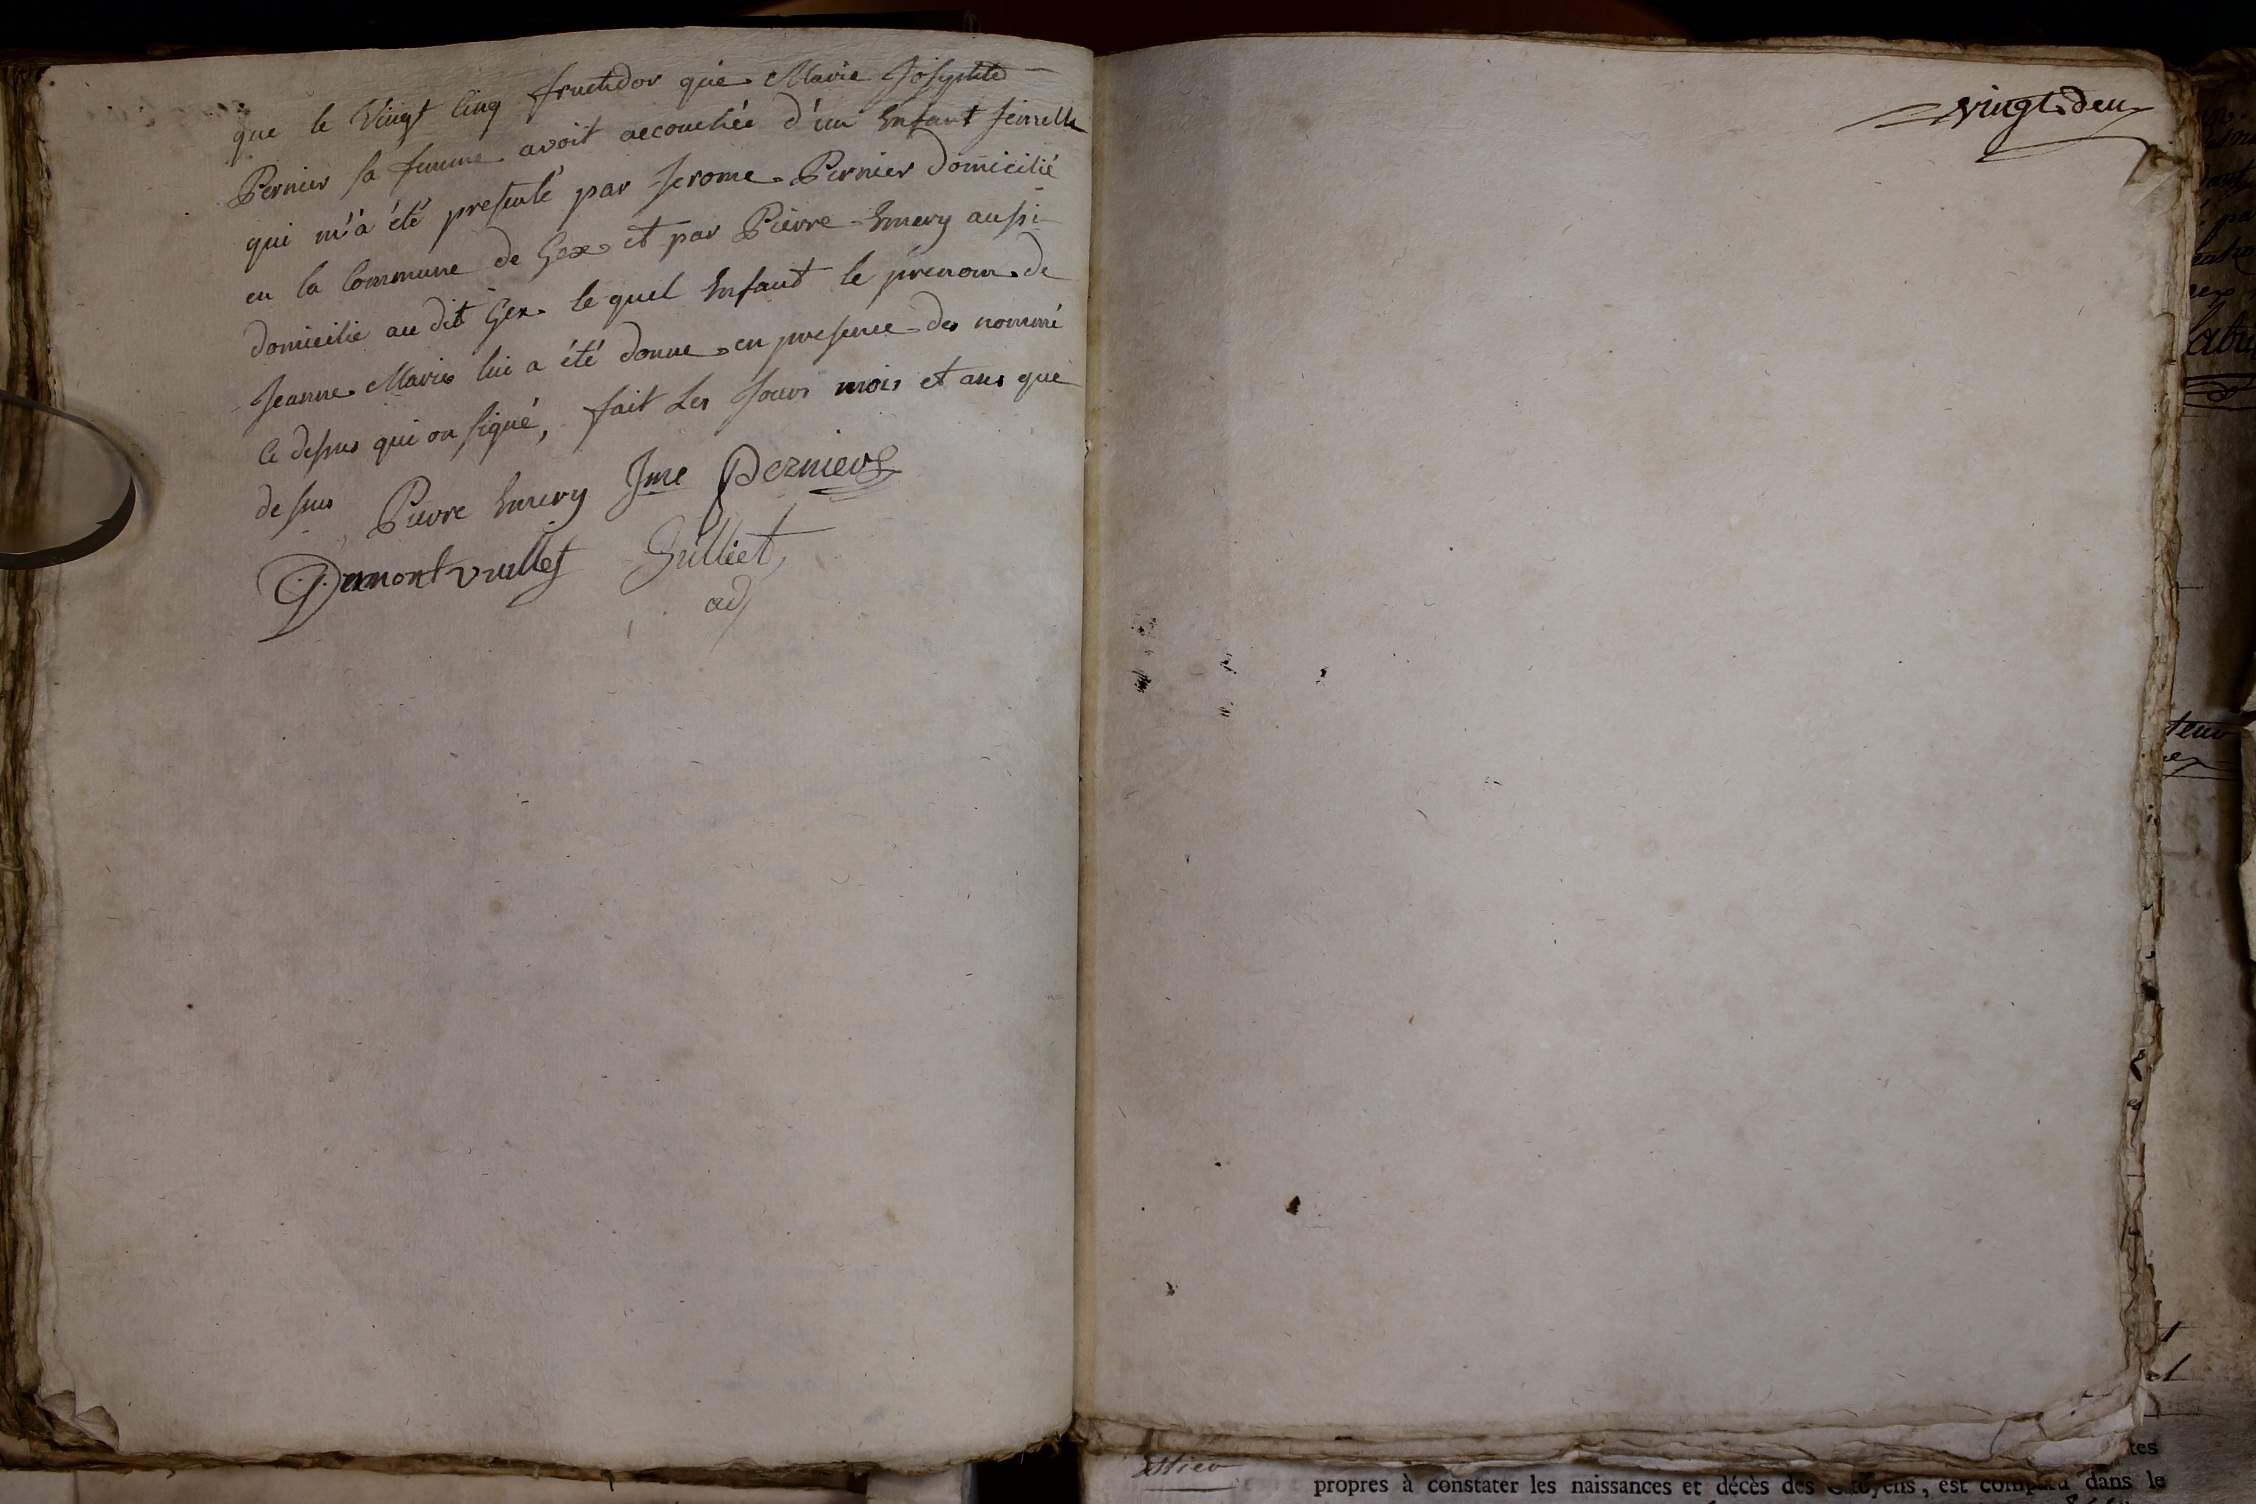 que le Vingt Cinq fructidor que Marie Josephte
Pernier sa femme avoit accouchée d'un Enfant femelle
qui m'a été presenté par Jerome Pernier domicilié
en la Commune de Gex et par Pierre Emery aussi
domicilie au dit Gex le quel Enfant le prenom de
Jeanne Marie lui a été donne en presence des nommé
Ce dessus qui on signé, fait Les Jours mois et ans que
dessus Pierre Emery Jme Pernier
Julliet
ad
vingt deux
propres à constater les naissances et décès des Citoyens, est dans le